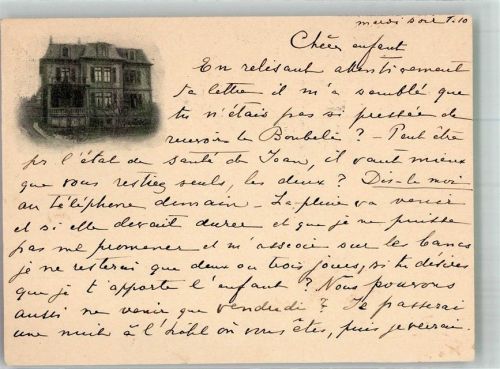 mardi soir
Chère enfant
En relisant attentivement
ta lettre il m'a semblé que
tu n'étais pas si pressée de
recevoir le Boubeli ? - Peut être
pr l'état de santé de Jean, il vaut mieux
que vous restiez seuls, les deux ? Dis-le moi
au téléphone demain - La pluie va venir
et si elle devait durer et que je ne puisse
pas me promener et m'asseoir sur les bancs
je ne resterai que deux ou trois jours, si tu désires
que je t'apporte l'enfant ? Nous pouvons
aussi ne venir que vendredi ? Je passerai
une nuit à l'hôtel où vous êtes, puis je verrai.